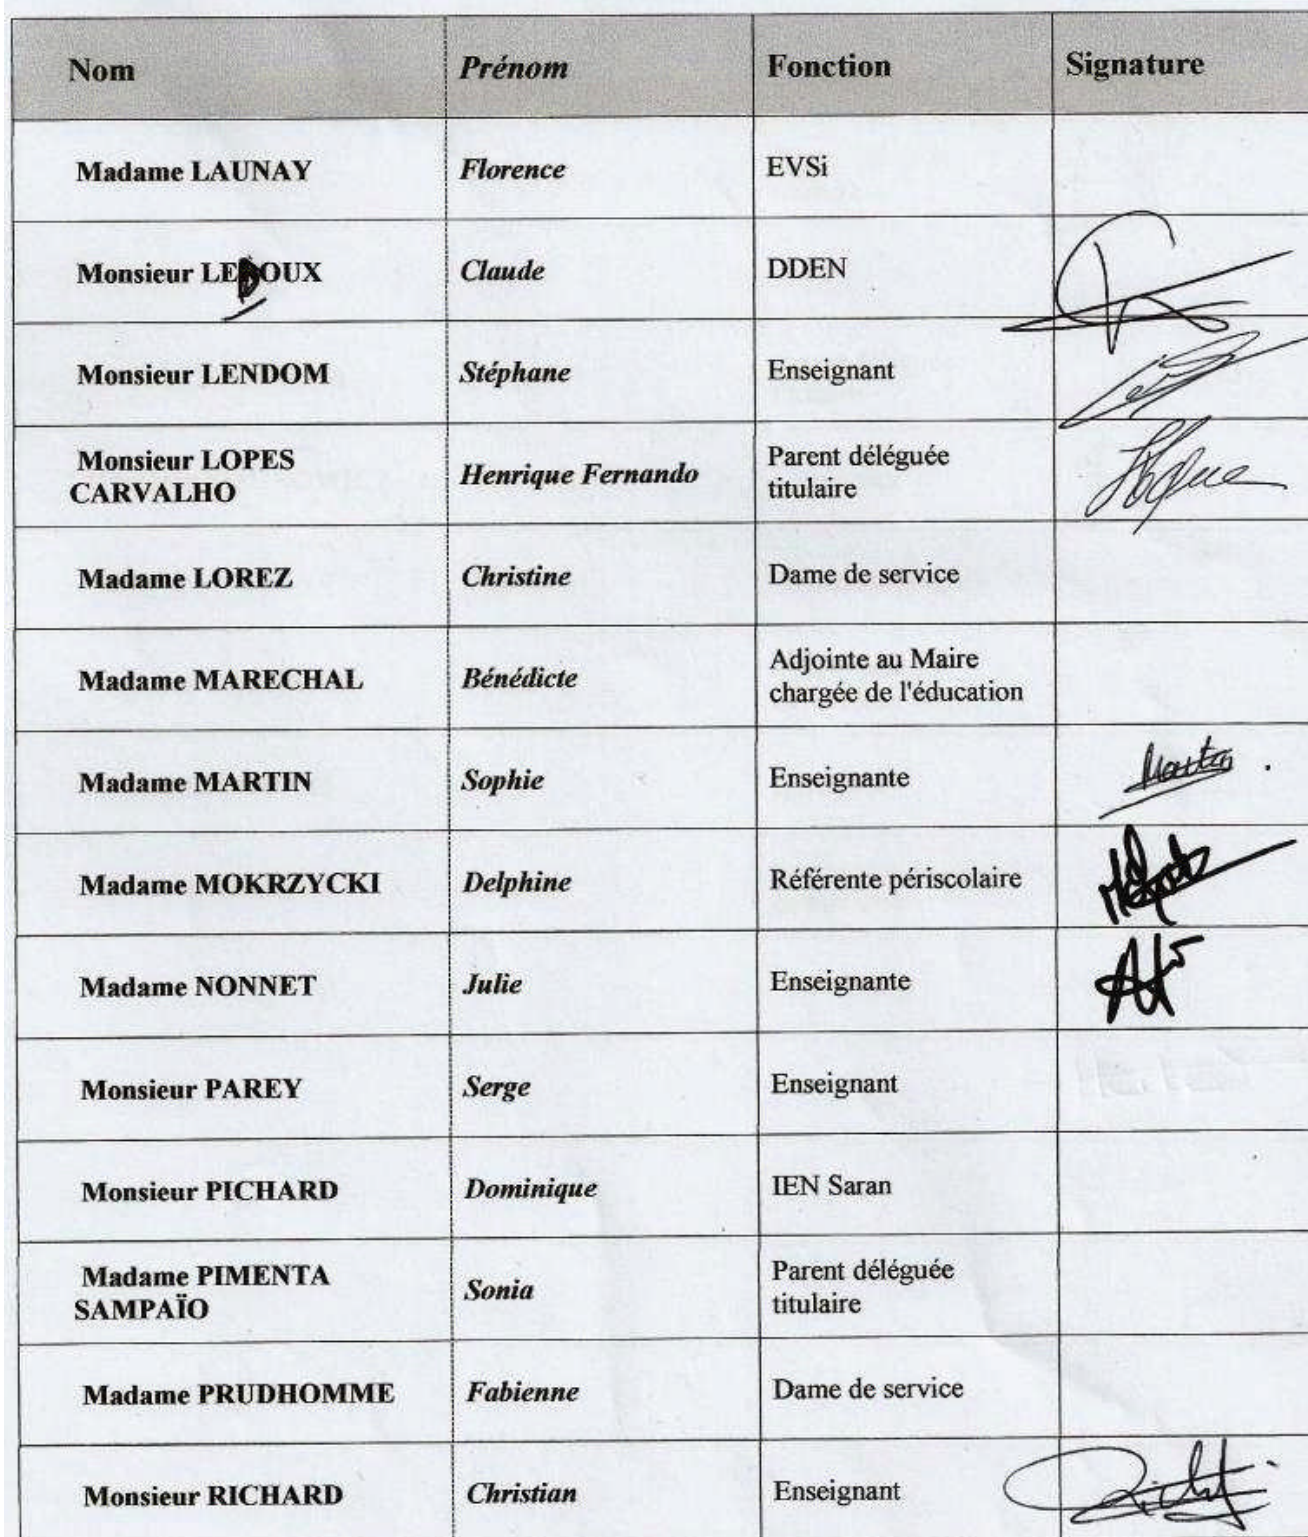 Nom Prénom Fonction Signature
Madame LAUNAY Florence EVSi
Monsieur LEDOUX Claude DDEN
Monsieur LENDOM Stéphane Enseignant
Monsieur LOPES
CARVALHO Henrique Fernando Parent déléguée
titulaire
Madame LOREZ Christine Dame de service
Madame MARECHAL Bénédicte Adjointe au Maire
chargée de l'éducation
Madame MARTIN Sophie Enseignante Martin
Madame MOKRZYCKI Delphine Référente périscolaire
Madame NONNET Julie Enseignante
Monsieur PAREY Serge Enseignant
Monsieur PICHARD Dominique IEN Saran
Madame PIMENTA
SAMPAÏO Sonia Parent déléguée
titulaire
Madame PRUDHOMME Fabienne Dame de service
Monsieur RICHARD Christian Enseignant